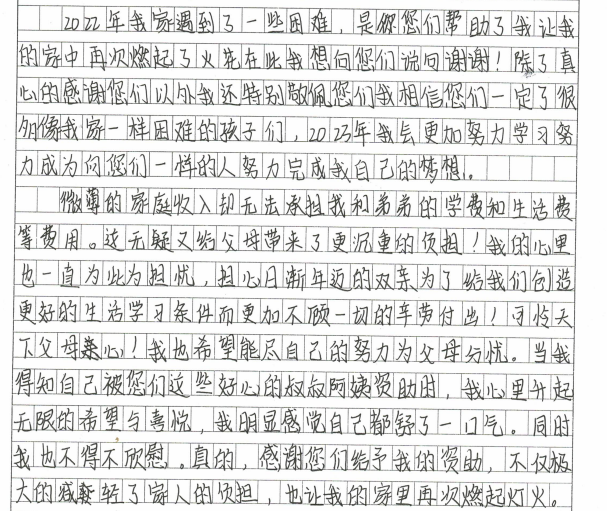 2022年我家遇到了一些困难，是您们帮助了我让我
的家中再次燃起了火花在此我想向您们说句谢谢！除了真
心的感谢您们以外我还特别敬佩您们我相信您们一定了很
多像我家一样困难的孩子们，2023年我会更加努力学习努
力成为向您们一样的人努力完成我自己的梦想。
微薄的家庭收入却无法承担我和弟弟的学费和生活费
等费用。这无疑又给父母带来了更沉重的负担！我的心里
也一直为此为担忧，担心日渐年迈的双亲为了给我们创造
更好的生活学习条件而更加不顾一切的辛劳付出！可怜天
下父母亲心！我也希望能尽自己的努力为父母分忧。当我
得知自己被您们这些好心的叔叔阿姨资助时，我心里升起
无限的希望与喜悦，我明显感觉自己都舒了一口气。同时
我也不得不欣慰。真的，感谢您们给予我的资助，不仅极
大的减轻了家人的负担，也让我的家里再次燃起灯火。